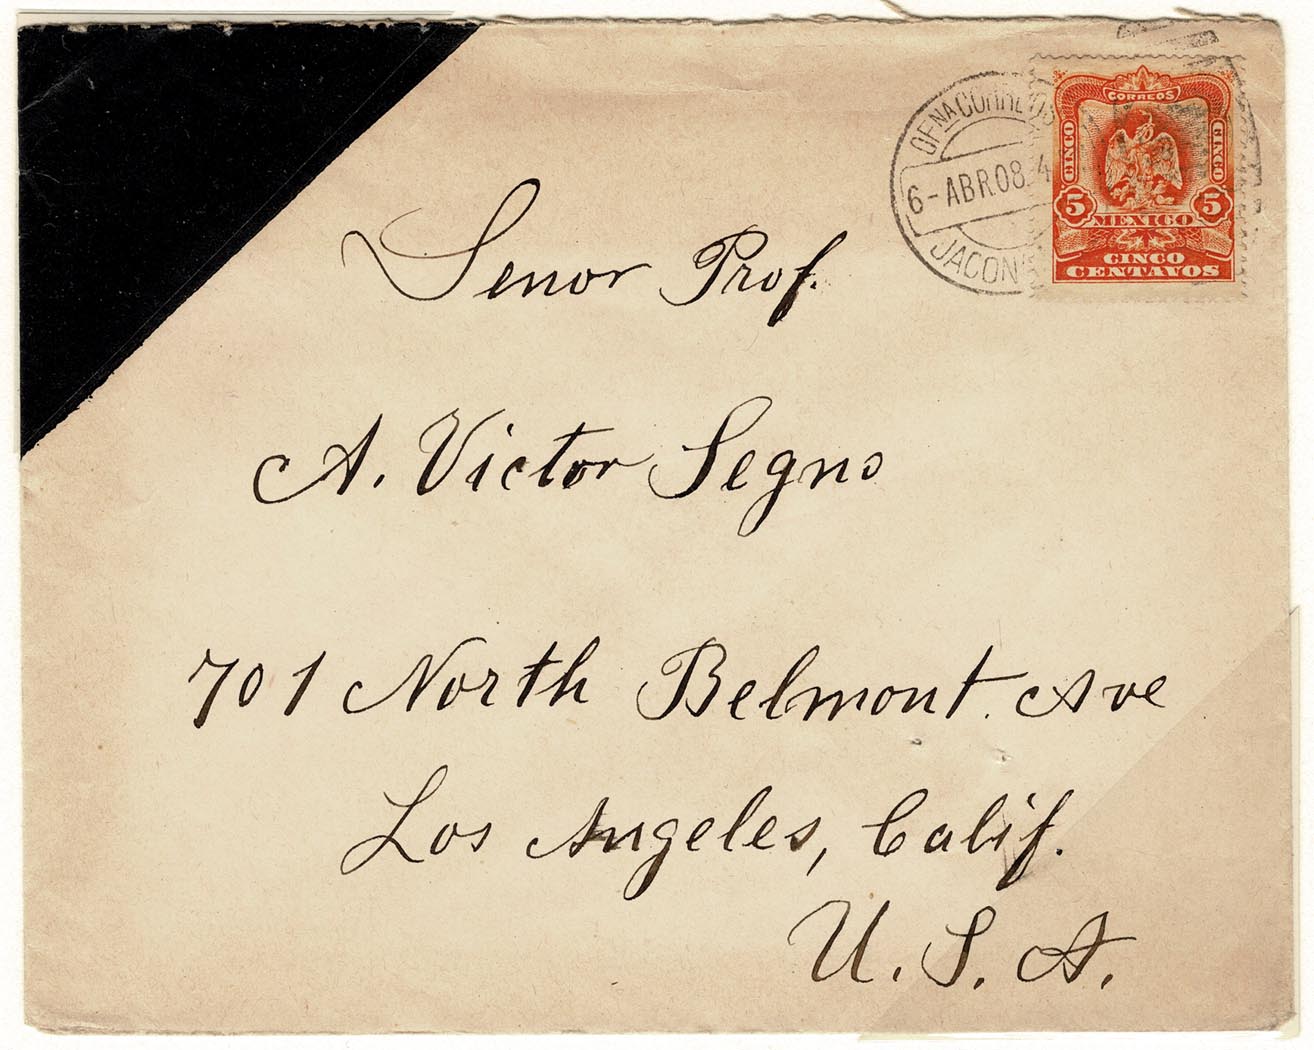 OFNA CORREOS
6-ABR.08.4
JACONA
CORREOS
CINCO
CINCO
5 MEXICO 5
CINCO
CENTAVOS
Senor Prof.
A. Victor Segno
701 North Belmont. Ave
Los Angeles, Calif.
U. S. A.